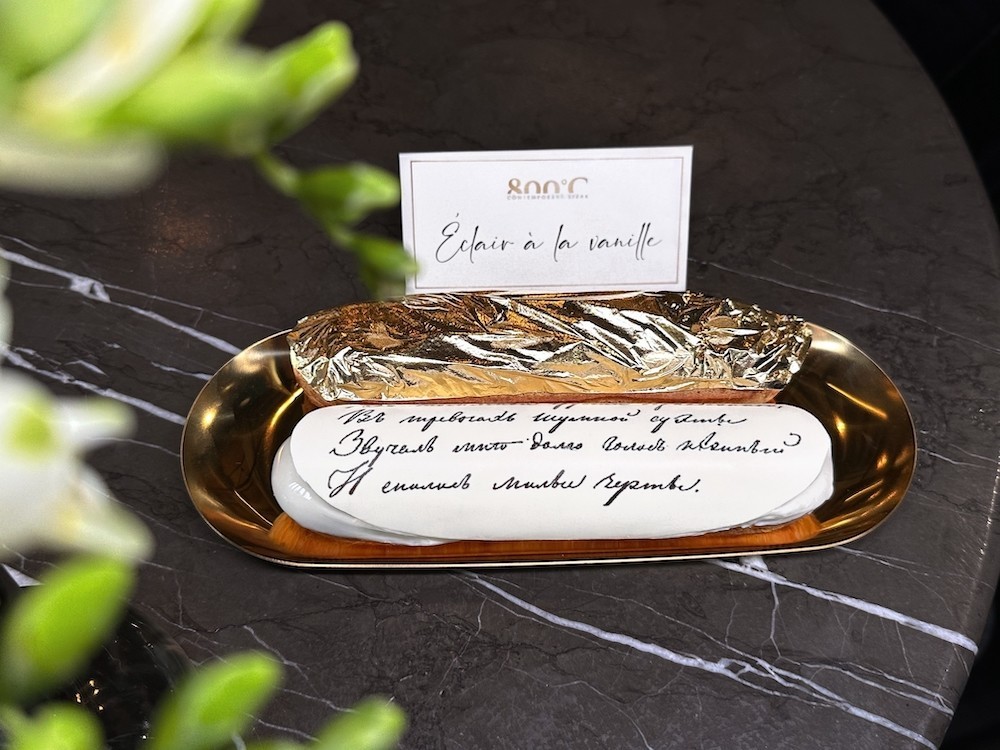 800°C
CONTEMPORARY STEAK
Éclair à la vanille
Въ тревогахъ шумной суеты
Звучалъ мнѣ долго голосъ нѣжный
И снились милые черты.